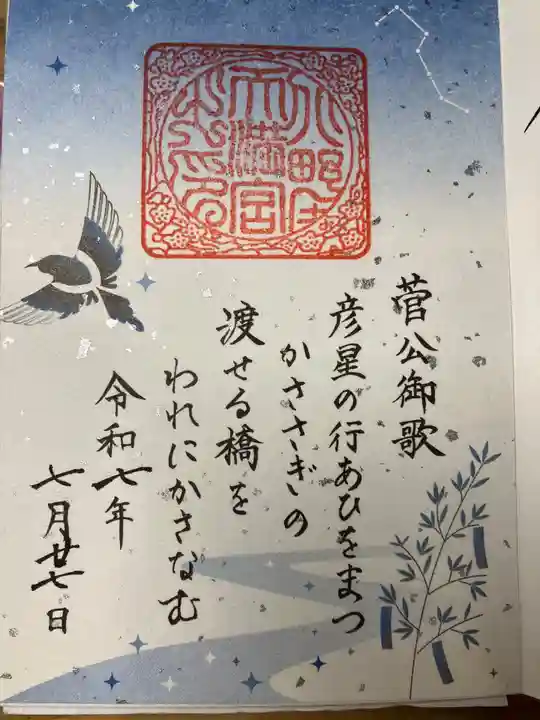 菅公御歌
彦星の行あひをまつ
かささぎの
渡せる橋を
われにかさなむ
令和七年
七月廿七日